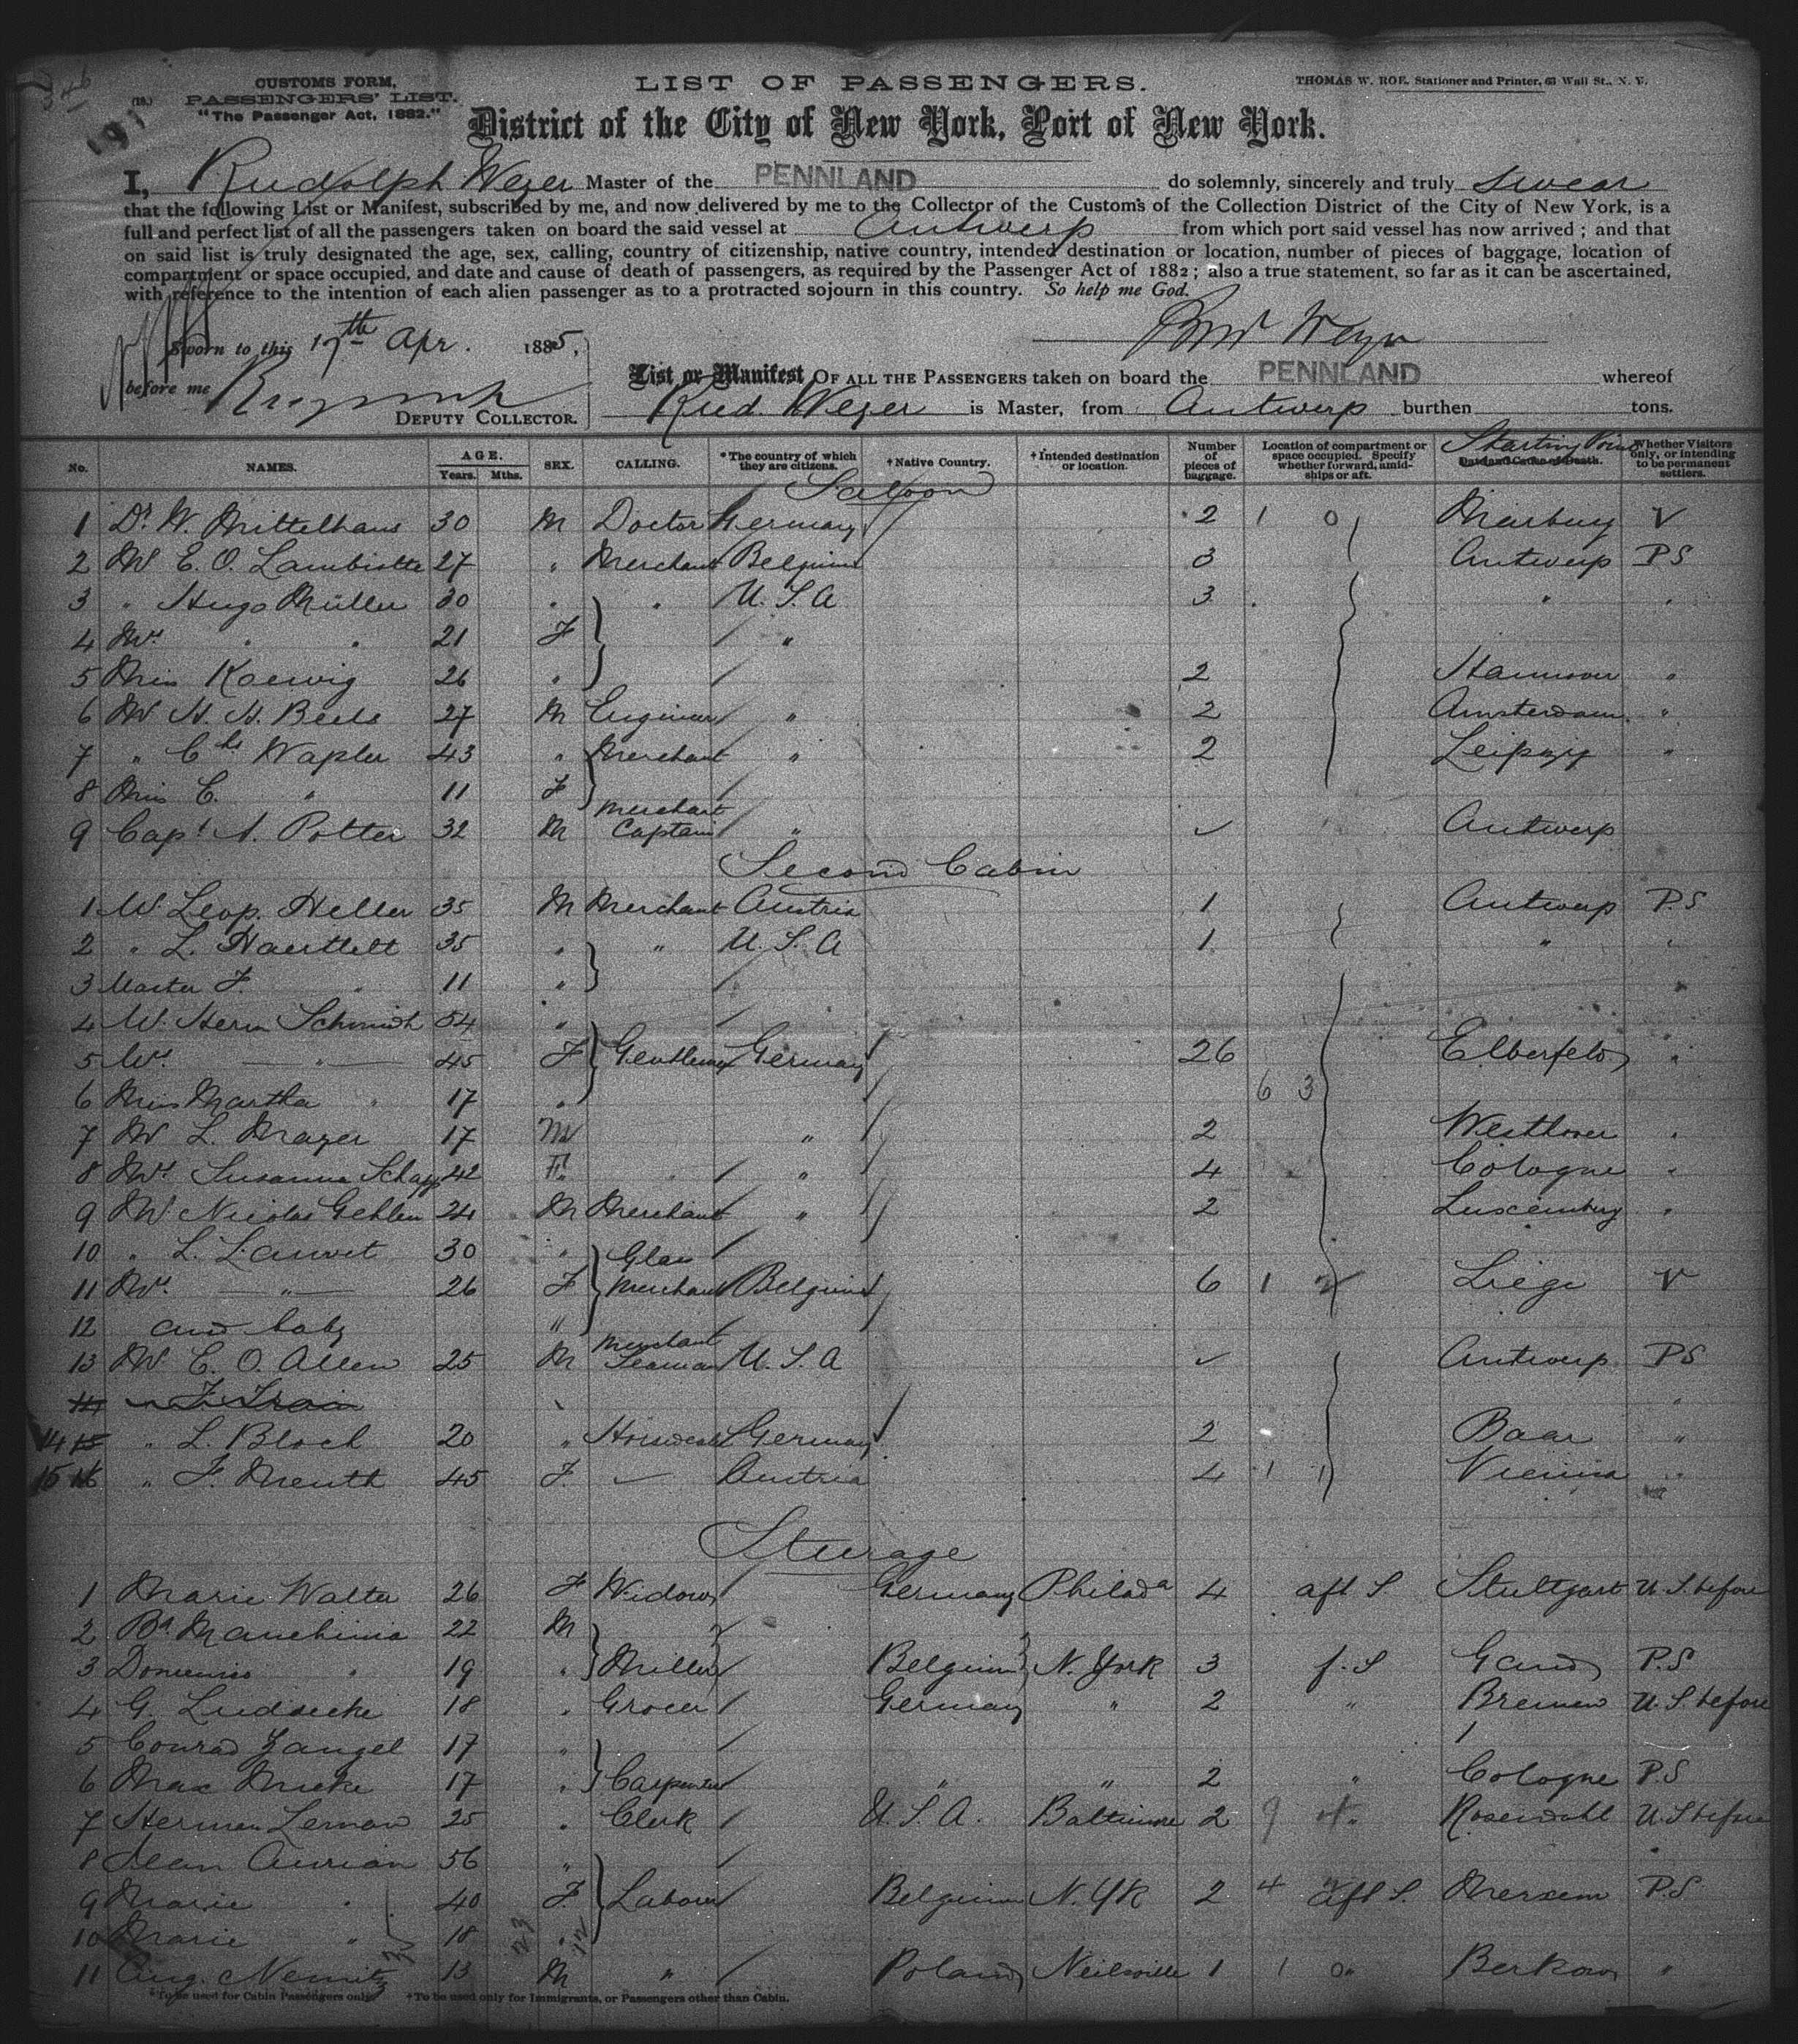 CUSTOMS FORM,
PASSENGERS' LIST.
"The Passenger Act, 1882."
(18.)
191
LIST OF PASSENGERS.
THOMAS W. ROE, Stationer and Printer, 63 Wall St., N. Y.
District of the City of New York, Port of New York.
I, Rudolph Weyer Master of the PENNLAND do solemnly, sincerely and truly swear
that the following List or Manifest, subscribed by me, and now delivered by me to the Collector of the Customs of the Collection District of the City of New York, is a
full and perfect list of all the passengers taken on board the said vessel at Antwerp from which port said vessel has now arrived; and that
on said list is truly designated the age, sex, calling, country of citizenship, native country, intended destination or location, number of pieces of baggage, location of
compartment or space occupied, and date and cause of death of passengers, as required by the Passenger Act of 1882; also a true statement, so far as it can be ascertained,
with reference to the intention of each alien passenger as to a protracted sojourn in this country. So help me God.
Sworn to this 17th Apr. 1885,
Rud Weyer
before me
DEPUTY COLLECTOR.
List or Manifest OF ALL THE PASSENGERS taken on board the PENNLAND whereof
Rud. Weyer is Master, from Antwerp burthen tons.
No. NAMES. AGE. Years. Mths. SEX. CALLING. *The country of which they are citizens. †Native Country. †Intended destination or location. Number of pieces of baggage. Location of compartment or space occupied. Specify whether forward, amidships or aft. Date and Cause of Death. Starting Point Whether Visitors only, or intending to be permanent settlers.
Saloon
1 Dr. W. Mittelhaus 30 M Doctor Germany 2 1 0 Marburg V
2 Mr E. O. Lambiotte 27 " Merchant Belgium 3 Antwerp PS
3 " Hugo Müller 30 " " U. S. A 3 " "
4 Mrs " " 21 F "
5 Miss Koewig 26 " 2 Hannover "
6 Mr H. H. Beels 27 M Engineer " 2 Amsterdam "
7 " Chs Wapler 43 " Merchant " 2 Leipzig "
8 Miss C. " 11 F
9 Capt A. Potter 32 M Merchant Captain " ✓ Antwerp
Second Cabin
1 Mr Leop. Heller 35 M Merchant Austria 1 Antwerp P.S
2 " L. Haertlelt 35 " " U. S. A 1 " "
3 Master F. " 11 " "
4 Mr. Herm Schmidt 54 "
5 Mrs. " 45 F Gentleman Germany 26 Elberfeld "
6 Miss Martha " 17 " 6 3
7 Mr L. Mayer 17 M " 2 Westhoven "
8 Mrs Susanna Schapp 42 F. " 4 Cologne "
9 Mr Nicolas Gehlen 24 M Merchant " 2 Luxemburg "
10 " L. Lauwet 30 "
11 Mrs. " 26 F Glass Merchant Belgium 6 1 2 Liege V
12 and baby "
13 Mr E. O. Allen 25 M Merchant Seaman U. S. A ✓ Antwerp PS
14 " F. Train "
14 15 " L. Bloch 20 " Germany 2 Baar "
15 16 " F. Menth 45 F. Austria 4 1 1 Vienna "
Steerage
1 Marie Walter 26 F Widow Germany Philada 4 aft S Stuttgart U.S. before
2 Bd. Manchinia 22 M
3 " 19 " Miller Belgium N. York 3 f. S Gand P.S
4 G. Luddecke 18 " Grocer Germany " 2 " Bremen U.S. before
5 Conrad Zangel 17 "
6 Max Mucke 17 " Carpenter " " 2 " Cologne P.S
7 Herman Lemon 25 " Clerk U. S. A. Baltimore 2 9 " Rosendahl U.S before
8 Jean Aurian 56 " "
9 Marie " 40 F. Labour Belgium N. Yk 2 4 aft S. Merxem P.S
10 Marie " 18 "
11 Aug. Nemitz 13 M " Poland Neilsville 1 1 0 " Berkow "
*To be used for Cabin Passengers only. †To be used only for Immigrants, or Passengers other than Cabin.